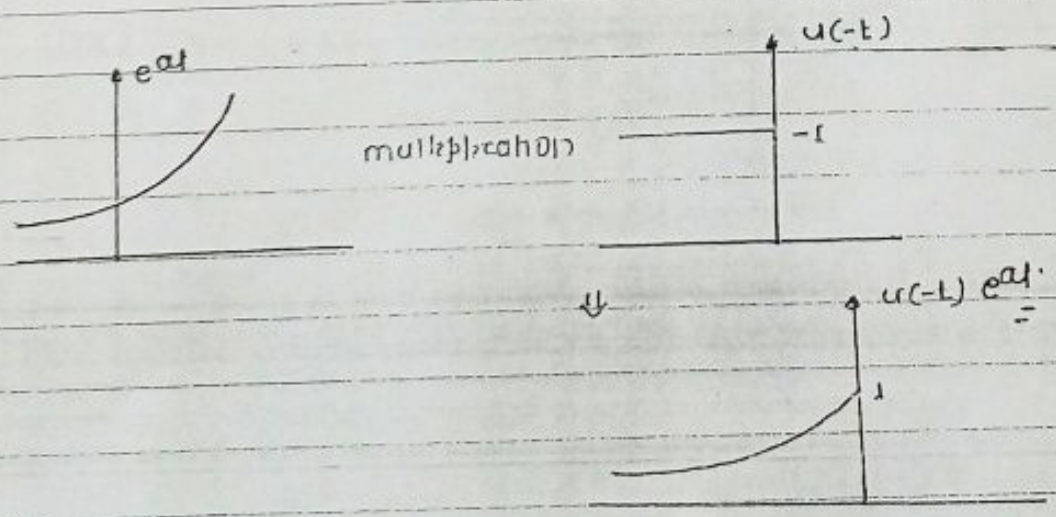 e^at
u(-t)
multiplication
-1
⇓
u(-t) e^at.
1